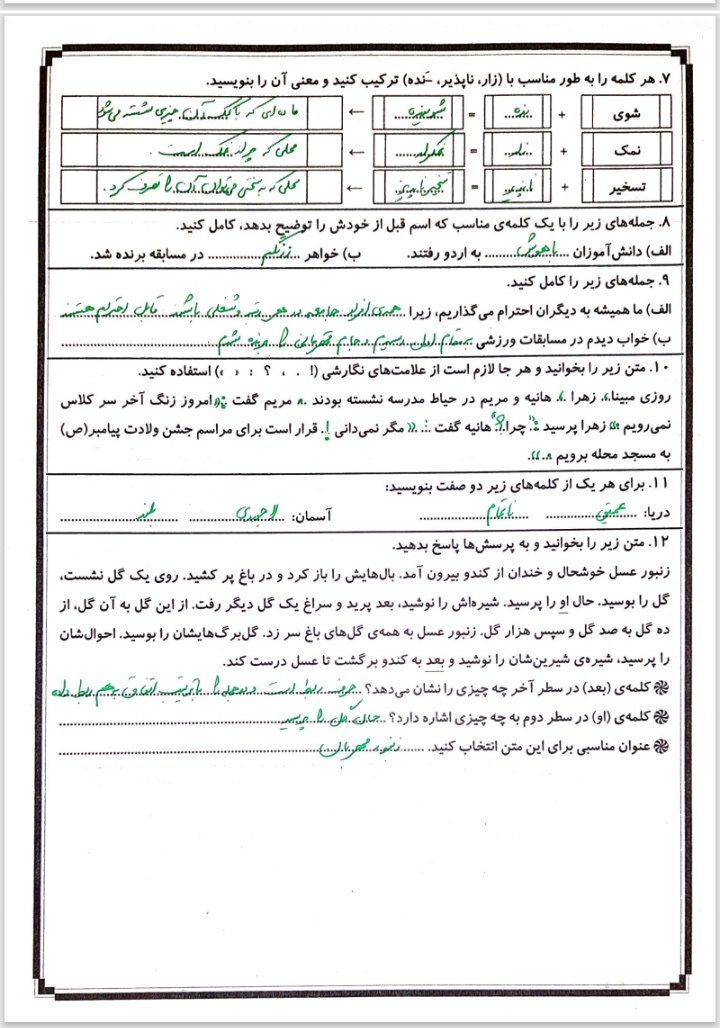 ۷. هر کلمه را به طور مناسب با (زار، ناپذیر، ـَ نده) ترکیب کنید و معنی آن را بنویسید.
شوی + ...نده... = شوینده ← ماده‌ای که با کمک آن چیزی شسته می‌شود
نمک + ...زار... = نمکزار ← محلی که پر از نمک است.
تسخیر + ناپذیر = تسخیر ناپذیر ← محلی که به سختی می‌توان آن را تصرف کرد.
۸. جمله‌های زیر را با یک کلمه‌ی مناسب که اسم قبل از خودش را توضیح بدهد، کامل کنید.
الف) دانش‌آموزان ....باهوش.... به اردو رفتند. ب) خواهر ....بزرگم.... در مسابقه برنده شد.
۹. جمله‌های زیر را کامل کنید.
الف) ما همیشه به دیگران احترام می‌گذاریم، زیرا همه‌ی افراد جامعه در هر رتبه و شغلی باشند قابل احترام هستند
ب) خواب دیدم در مسابقات ورزشی به مقام اول رسیدم و جام قهرمانی را برنده شدم
۱۰. متن زیر را بخوانید و هر جا لازم است از علامت‌های نگارشی (! . ، ؟ : « ») استفاده کنید.
روزی مبینا، زهرا ، هانیه و مریم در حیاط مدرسه نشسته بودند . مریم گفت :« امروز زنگ آخر سر کلاس
نمی‌رویم » زهرا پرسید :« چرا؟» هانیه گفت : « مگر نمی‌دانی !. قرار است برای مراسم جشن ولادت پیامبر(ص)
به مسجد محله برویم . »
۱۱. برای هر یک از کلمه‌های زیر دو صفت بنویسید:
دریا: ....عمیق.... ....ناآرام.... آسمان: ....لاجوردی.... ....بلند....
۱۲. متن زیر را بخوانید و به پرسش‌ها پاسخ بدهید.
زنبور عسل خوشحال و خندان از کندو بیرون آمد. بال‌هایش را باز کرد و در باغ پر کشید. روی یک گل نشست،
گل را بوسید. حال او را پرسید. شیره‌اش را نوشید، بعد پرید و سراغ یک گل دیگر رفت. از این گل به آن گل، از
ده گل به صد گل و سپس هزار گل. زنبور عسل به همه‌ی گل‌های باغ سر زد. گل‌برگ‌هایشان را بوسید. احوال‌شان
را پرسید، شیره‌ی شیرین‌شان را نوشید و بعد به کندو برگشت تا عسل درست کند.
کلمه‌ی (بعد) در سطر آخر چه چیزی را نشان می‌دهد؟ حرف ربط است دو جمله را با ترتیب اتفاق بهم ربط داده
کلمه‌ی (او) در سطر دوم به چه چیزی اشاره دارد؟ حال گل را پرسید
عنوان مناسبی برای این متن انتخاب کنید. ....زنبور مهربان....